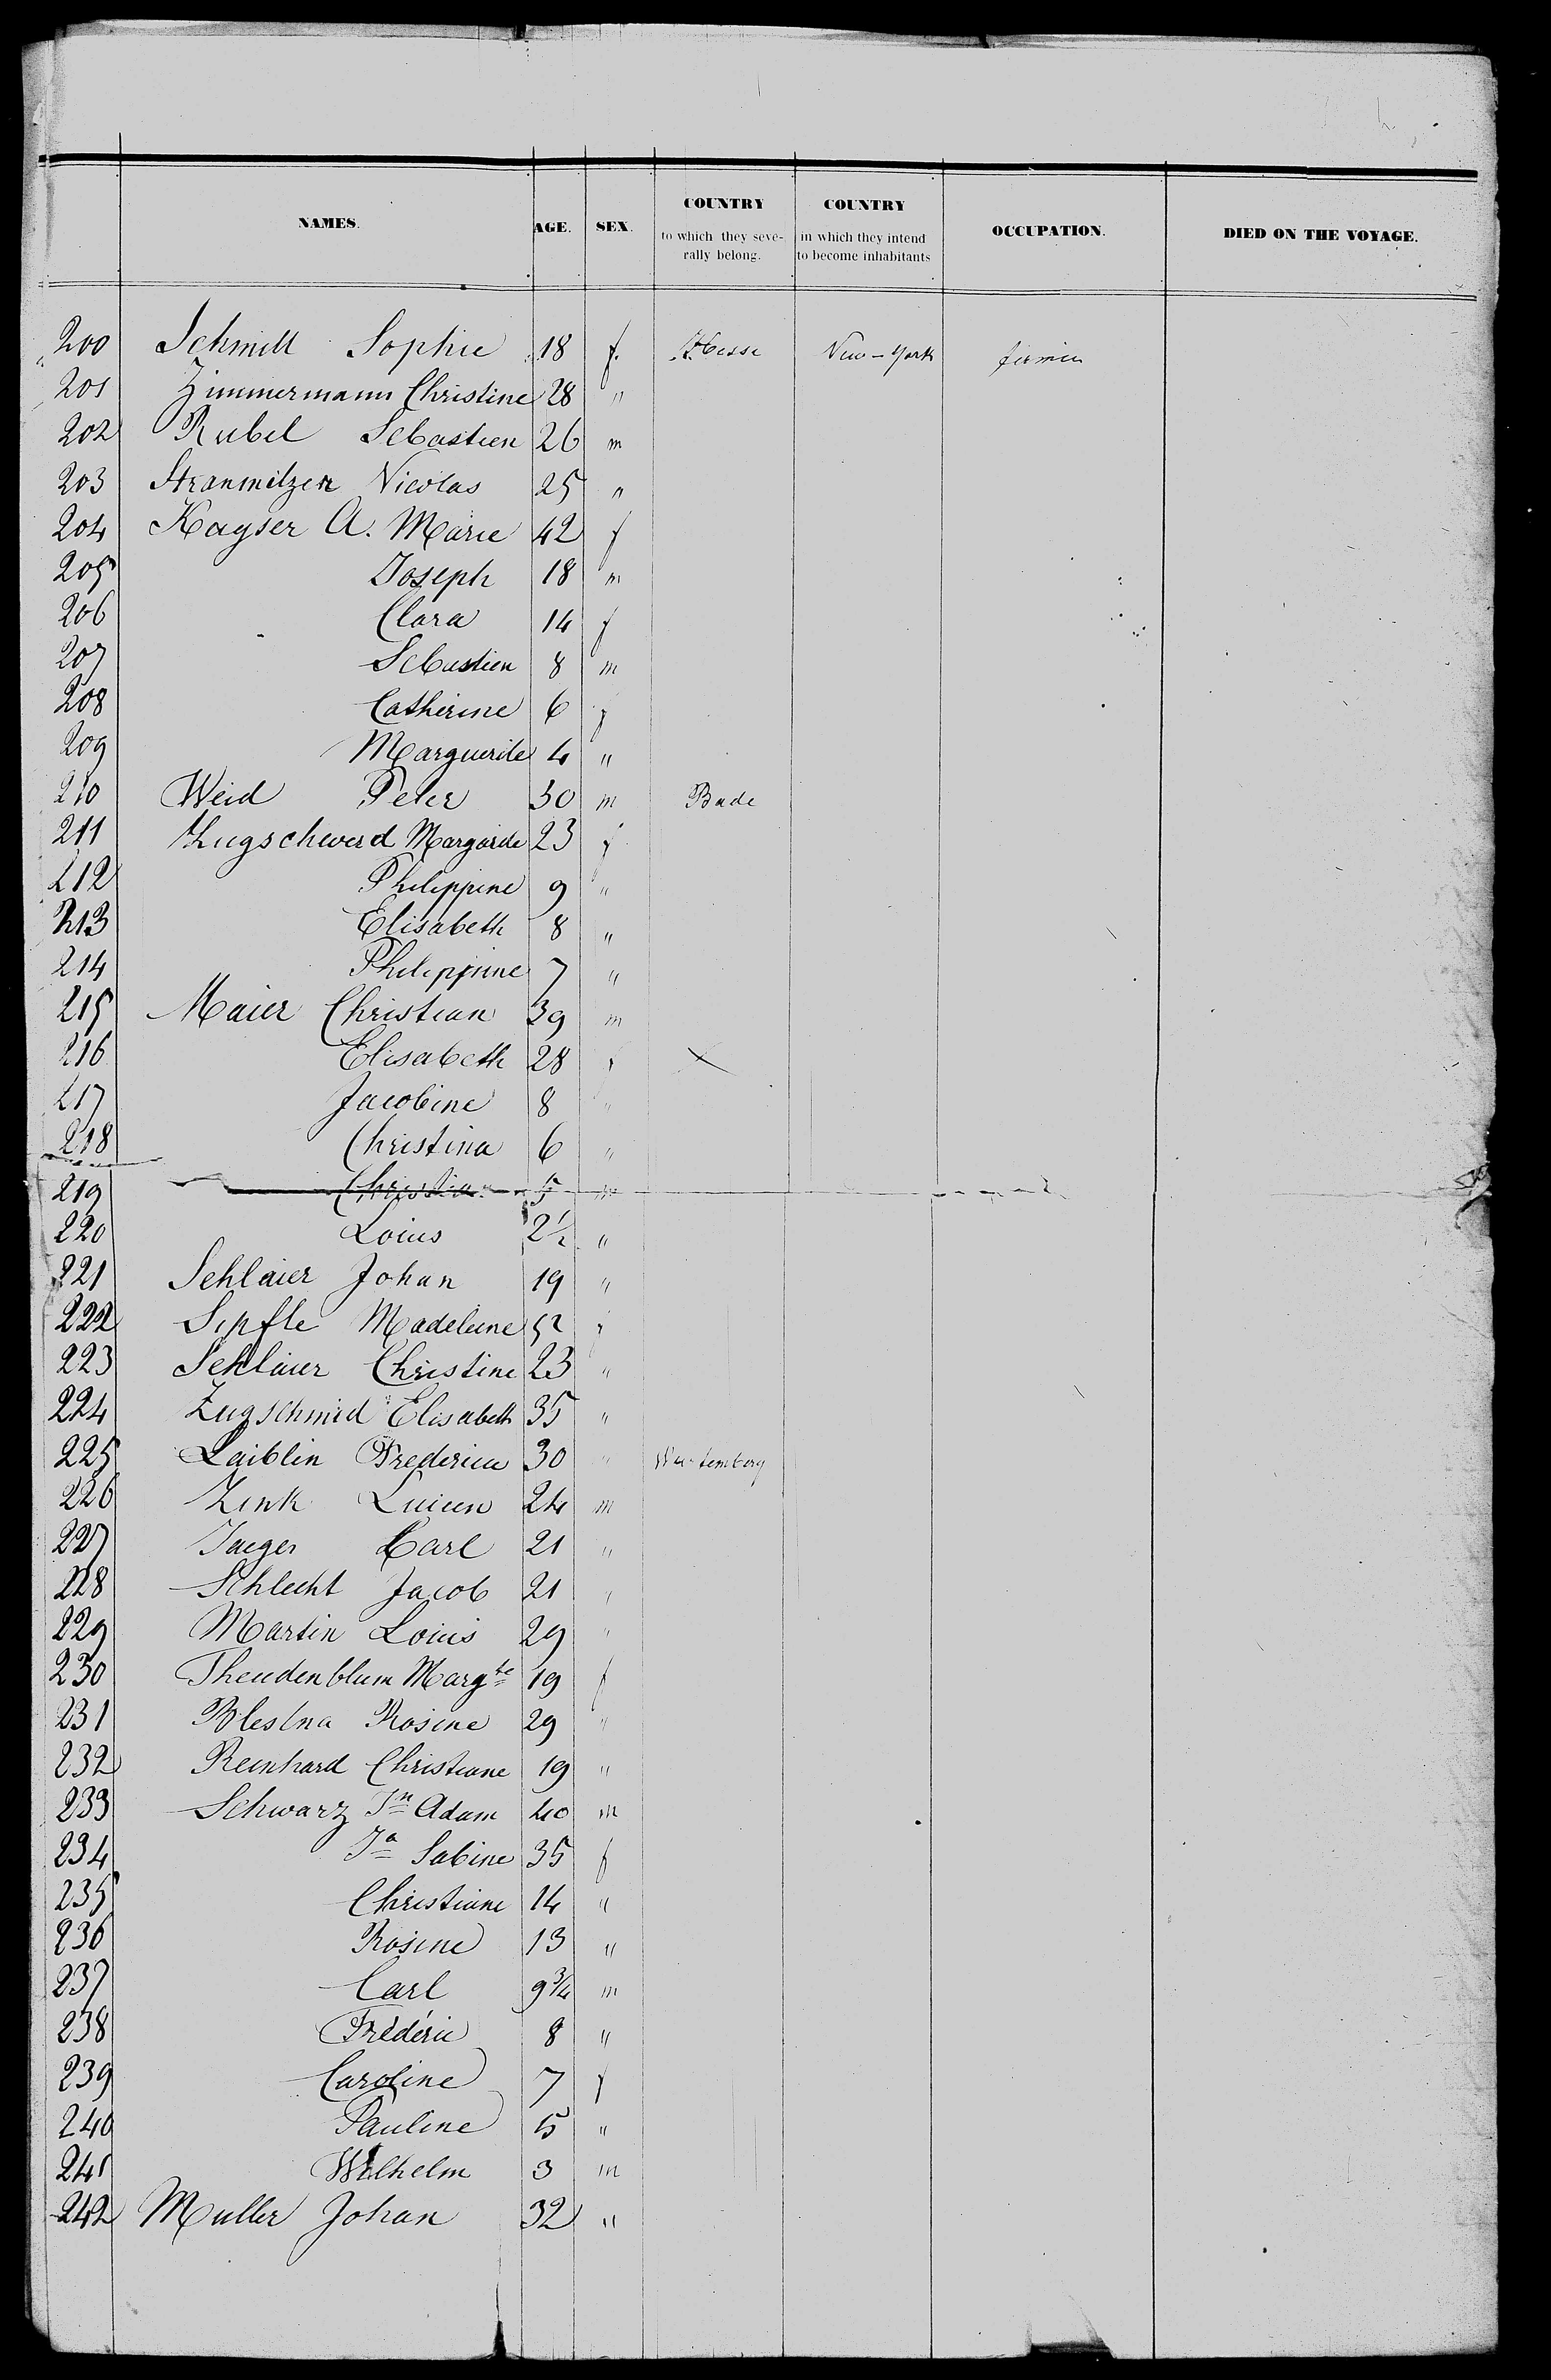 NAMES. AGE. SEX. COUNTRY to which they severally belong. COUNTRY in which they intend to become inhabitants OCCUPATION. DIED ON THE VOYAGE.
200 Schmitt Sophie 18 f. Hesse New-York
201 Zimmermann Christine 28 "
202 Rubel Sebastien 26 m
203 Stranmitzer Nicolas 25 "
204 Kayser A. Marie 42 f
205 Joseph 18 m
206 Clara 14 f
207 Sebastien 8 m
208 Catherine 6 f
209 Marguerite 4 "
210 Weid Peter 30 m Bade
211 Zugschwerd Margarite 23 f
212 Philippine 9 "
213 Elisabeth 8 "
214 Philippine 7 "
215 Maier Christian 39 m
216 Elisabeth 28 f
217 Jacobine 8 "
218 Christina 6 "
219 Christian 5 m
220 Loius 2 1/2 "
221 Schlaier Johan 19 "
222 Sipfle Madeleine 52 f
223 Schlaier Christine 23 "
224 Zugschmid Elisabeth 35 "
225 Laiblin Frederica 30 " Wurtemberg
226 Zink Lucien 24 m
227 Jaeger Carl 21 "
228 Schlecht Jacob 21 "
229 Martin Loius 29 "
230 Theudenblum Margte 19 f
231 Rosine 29 "
232 Reinhard Christiane 19 "
233 Schwarz Jn Adam 40 m
234 Ja Sabine 35 f
235 Christiane 14 "
236 Rosine 13 "
237 Carl 9 3/4 m
238 Fréderic 8 "
239 Caroline 7 f
240 Pauline 5 "
241 Wilhelm 3 m
242 Muller Johan 32 "